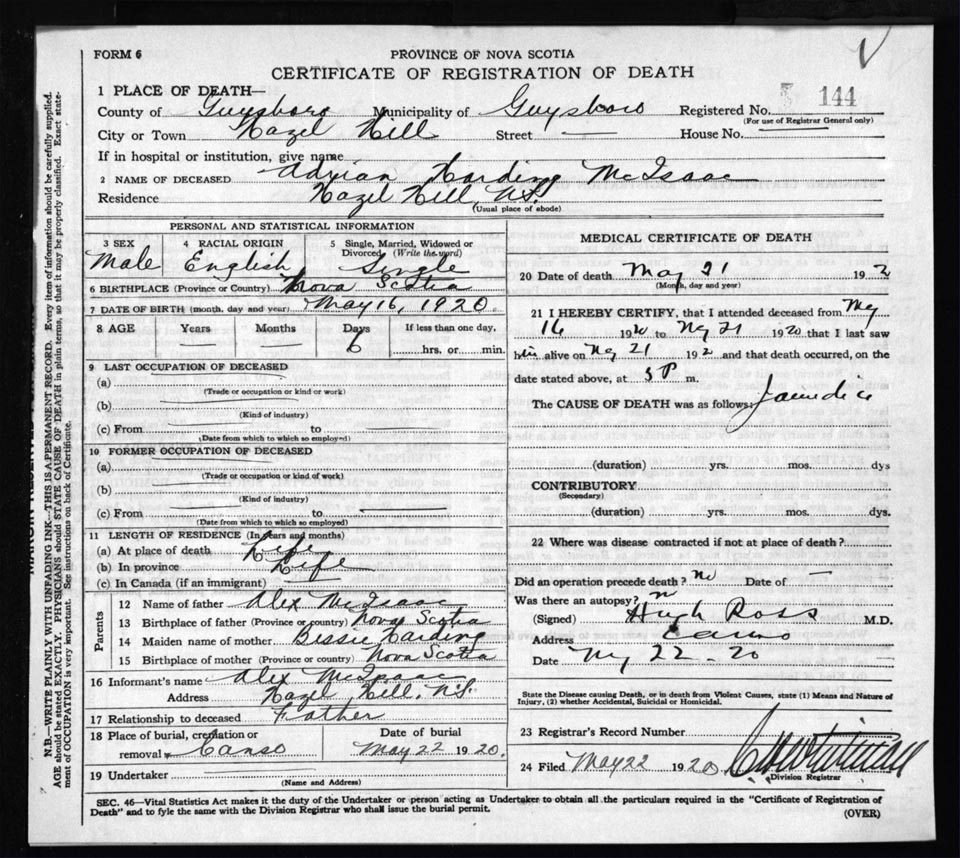 FORM 6
PROVINCE OF NOVA SCOTIA
CERTIFICATE OF REGISTRATION OF DEATH
1 PLACE OF DEATH—
County of Guysboro Municipality of Guysboro Registered No. 144
(For use of Registrar General only)
City or Town Hazel Hill Street — House No. —
If in hospital or institution, give name
2 NAME OF DECEASED Adrian Harding McIsaac
Residence Hazel Hill, N.S.
(Usual place of abode)
PERSONAL AND STATISTICAL INFORMATION
3 SEX Male
4 RACIAL ORIGIN English
5 Single, Married, Widowed or Divorced (Write the word) Single
6 BIRTHPLACE (Province or Country) Nova Scotia
7 DATE OF BIRTH (month, day and year) May 16, 1920
8 AGE Years Months Days If less than one day,
6 hrs. or min.
9 LAST OCCUPATION OF DECEASED
(a)
(Trade or occupation or kind or work)
(b)
(Kind of industry)
(c) From to
(Date from which to which so employed)
10 FORMER OCCUPATION OF DECEASED
(a)
(Trade or occupation or kind of work)
(b)
(Kind of industry)
(c) From to
(Date from which to which so employed)
11 LENGTH OF RESIDENCE (In years and months)
(a) At place of death Life
(b) In province Life
(c) In Canada (if an immigrant) —
Parents
12 Name of father Alex McIsaac
13 Birthplace of father (Province or country) Nova Scotia
14 Maiden name of mother Bessie Harding
15 Birthplace of mother (Province or country) Nova Scotia
16 Informant's name Alex McIsaac
Address Hazel Hill, N.S.
17 Relationship to deceased Father
18 Place of burial, cremation or removal Canso
Date of burial May 22 1920.
19 Undertaker
(Name and Address)
MEDICAL CERTIFICATE OF DEATH
20 Date of death May 21 192
(Month, day and year)
21 I HEREBY CERTIFY, that I attended deceased from My
16 1920 to My 21 1920 that I last saw
him alive on My 21 192 and that death occurred, on the
date stated above, at 5 P m.
The CAUSE OF DEATH was as follows: Jaundice
(duration) yrs. mos. dys
CONTRIBUTORY
(Secondary)
(duration) yrs. mos. dys.
22 Where was disease contracted if not at place of death?
Did an operation precede death? No Date of —
Was there an autopsy? n
(Signed) Hugh Ross M.D.
Address Canso
Date My 22-20
State the Disease causing Death, or in death from Violent Causes, state (1) Means and Nature of
Injury, (2) whether Accidental, Suicidal or Homicidal.
23 Registrar's Record Number
24 Filed May 22 1920
Division Registrar
SEC. 46—Vital Statistics Act makes it the duty of the Undertaker or person acting as Undertaker to obtain all the particulars required in the "Certificate of Registration of
Death" and to fyle the same with the Division Registrar who shall issue the burial permit.
(OVER)
N.B.—WRITE PLAINLY WITH UNFADING INK—THIS IS A PERMANENT RECORD. Every item of information should be carefully supplied.
AGE should be stated EXACTLY. PHYSICIANS should STATE CAUSE OF DEATH in plain terms, so that it may be properly classified. Exact state-
ment of OCCUPATION is very important. See instructions on back of Certificate.